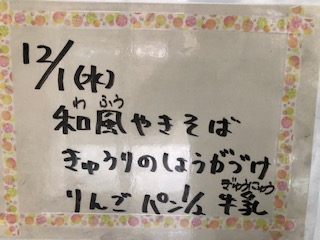 12/1(水)
和風やきそば
わふう
きゅうりのしょうがづけ
りんご パン1/2 牛乳
ぎゅうにゅう